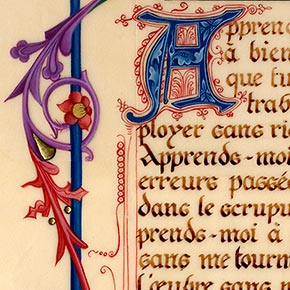 Apprend
à bien
que tu
trab
ployer sans ri
Apprends-moi
erreurs passé
dans le scrupu
prends-moi à
sans me tourm
l'œuvre sans